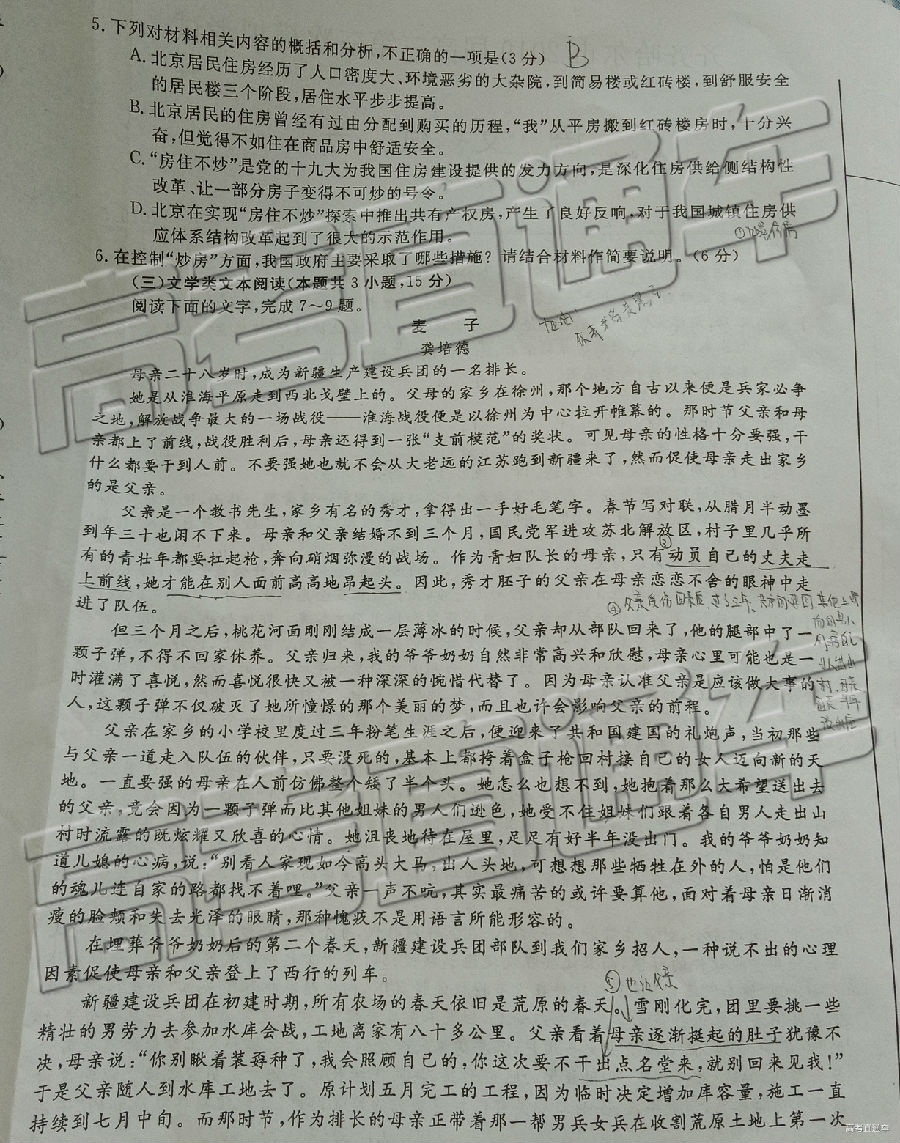 5.下列对材料相关内容的概括和分析,不正确的一项是(3分) B
A.北京居民住房经历了人口密度大、环境恶劣的大杂院,到简易楼或红砖楼,到舒服安全
的居民楼三个阶段,居住水平步步提高。
B.北京居民的住房曾经有过由分配到购买的历程,“我”从平房搬到红砖楼房时,十分兴
奋,但觉得不如住在商品房中舒适安全。
C.“房住不炒”是党的十九大为我国住房建设提供的发力方向,是深化住房供给侧结构性
改革、让一部分房子变得不可炒的号令。
D.北京在实现“房住不炒”探索中推出共有产权房,产生了良好反响,对于我国城镇住房供
应体系结构改革起到了很大的示范作用。
6.在控制“炒房”方面,我国政府主要采取了哪些措施?请结合材料作简要说明。(6分)
(三)文学类文本阅读(本题共3小题,15分)
阅读下面的文字,完成7~9题。
麦 子
龚培德
母亲二十八岁时,成为新疆生产建设兵团的一名排长。
她是从淮海平原走到西北戈壁上的。父母的家乡在徐州,那个地方自古以来便是兵家必争
之地,解放战争最大的一场战役——淮海战役便是以徐州为中心拉开帷幕的。那时节父亲和母
亲都上了前线,战役胜利后,母亲还得到一张“支前模范”的奖状。可见母亲的性格十分要强,干
什么都要干到人前。不要强她也就不会从大老远的江苏跑到新疆来了,然而促使母亲走出家乡
的是父亲。
父亲是一个教书先生,家乡有名的秀才,拿得出一手好毛笔字。春节写对联,从腊月半动墨
到年三十也闲不下来。母亲和父亲结婚不到三个月,国民党军进攻苏北解放区,村子里几乎所
有的青壮年都要扛起枪,奔向硝烟弥漫的战场。作为青妇队长的母亲,只有动员自己的丈夫走
上前线,她才能在别人面前高高地昂起头。因此,秀才胚子的父亲在母亲恋恋不舍的眼神中走
进了队伍。
但三个月之后,桃花河面刚刚结成一层薄冰的时候,父亲却从部队回来了,他的腿部中了一
颗子弹,不得不回家休养。父亲归来,我的爷爷奶奶自然非常高兴和欣慰,母亲心里可能也是一
时灌满了喜悦,然而喜悦很快又被一种深深的惋惜代替了。因为母亲认准父亲是应该做大事的
人,这颗子弹不仅破灭了她所憧憬的那个美丽的梦,而且也许会影响父亲的前程。
父亲在家乡的小学校里度过三年粉笔生涯之后,便迎来了共和国建国的礼炮声,当初那些
与父亲一道走入队伍的伙伴,只要没死的,基本上都挎着盒子枪回村接自己的女人迈向新的天
地。一直要强的母亲在人前仿佛整个矮了半个头。她怎么也想不到,她抱着那么大希望送出去
的父亲,竟会因为一颗子弹而比其他姐妹的男人们逊色,她受不住姐妹们跟着各自男人走出山
村时流露的既炫耀又欣喜的心情。她沮丧地待在屋里,足足有好半年没出门。我的爷爷奶奶知
道儿媳的心病,说:“别看人家现如今高头大马,出人头地,可想想那些牺牲在外的人,怕是他们
的魂儿连自家的路都找不着哩。”父亲一声不吭,其实最痛苦的或许要算他,面对着母亲日渐消
瘦的脸颊和失去光泽的眼睛,那种愧疚不是用语言所能形容的。
在埋葬爷爷奶奶后的第二个春天,新疆建设兵团部队到我们家乡招人,一种说不出的心理
因素促使母亲和父亲登上了西行的列车。
新疆建设兵团在初建时期,所有农场的春天依旧是荒原的春天。雪刚化完,团里要挑一些
精壮的男劳力去参加水库会战,工地离家有八十多公里。父亲看着母亲逐渐挺起的肚子犹豫不
决,母亲说:“你别瞅着装孬种了,我会照顾自己的,你这次要不干出点名堂来,就别回来见我!”
于是父亲随人到水库工地去了。原计划五月完工的工程,因为临时决定增加库容量,施工一直
持续到七月中旬。而那时节,作为排长的母亲正带着那一帮男兵女兵在收割荒原土地上第一次
高考直通车
高考直通车
高考直通车